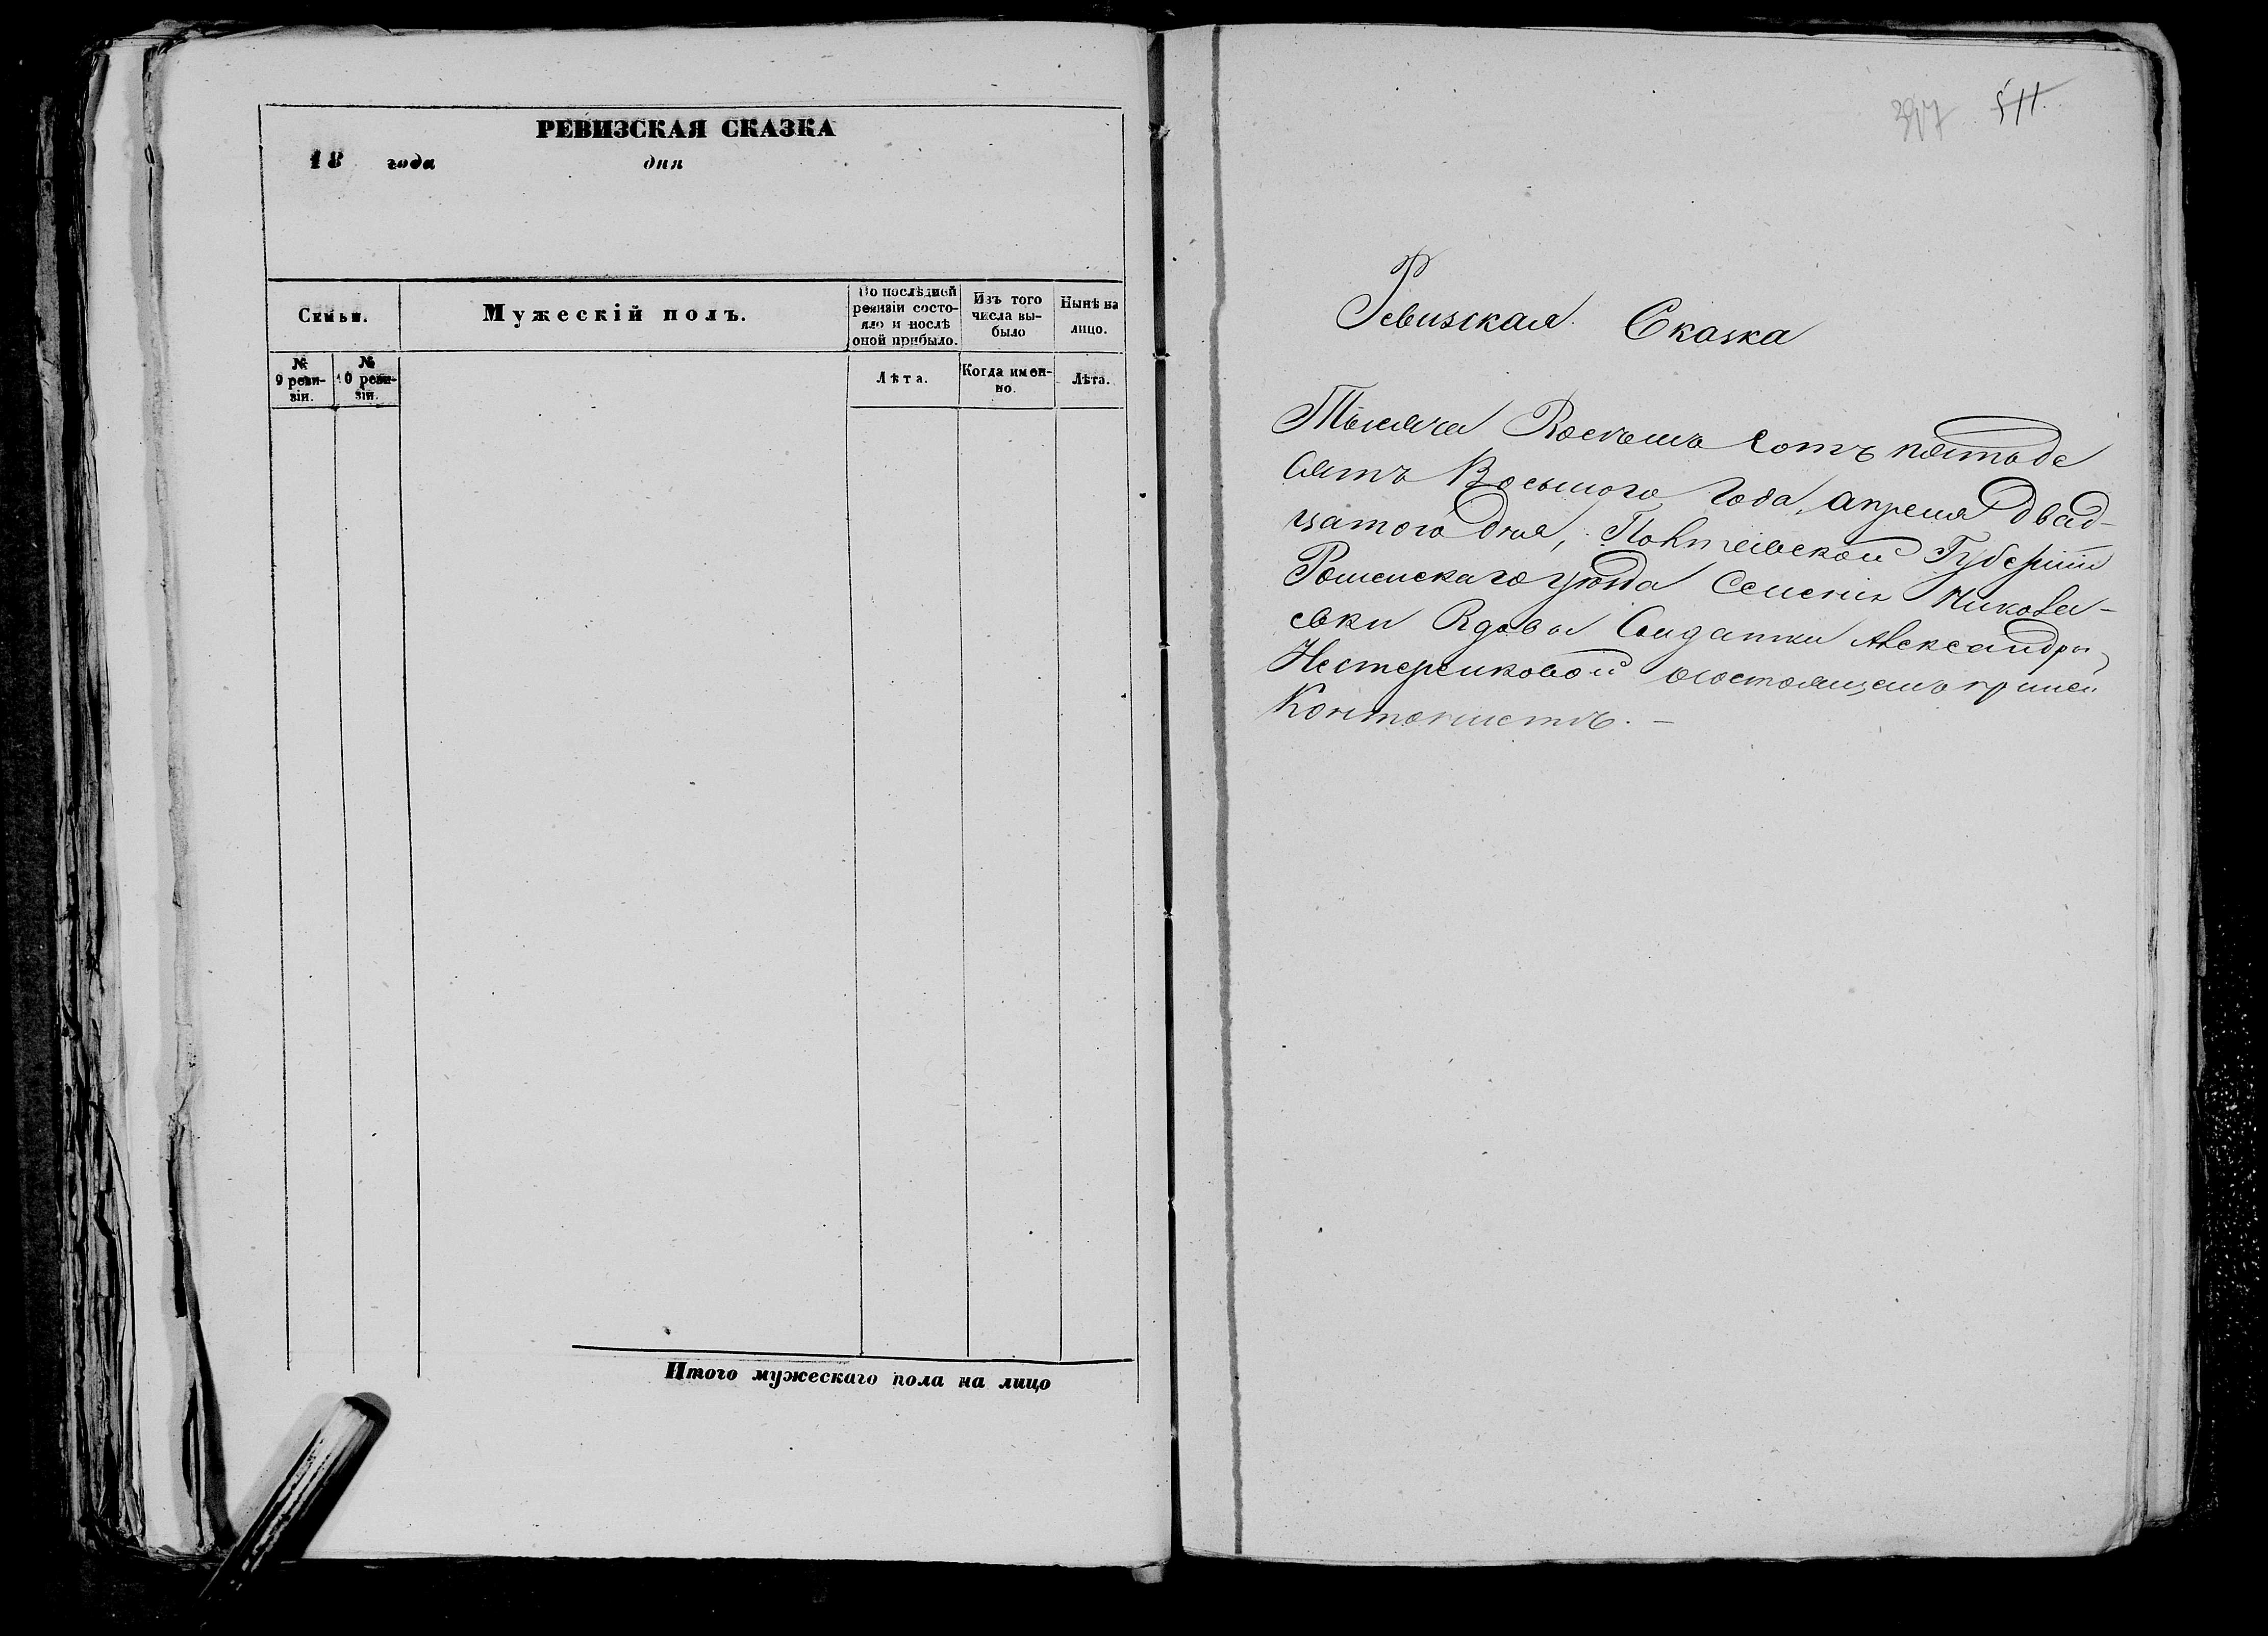 РЕВИЗСКАЯ СКАЗКА
18 года дня
Семьи.
Мужескій полъ.
По послѣдней ревизіи состояло и послѣ оной прибыло.
Изъ того числа выбыло
Нынѣ на лицо.
№ 9 ревизіи.
№ 10 ревизіи.
Лѣта.
Когда именно.
Лѣта.
Итого мужескаго пола на лицо
511.
Ревизская Сказка
Тысяча Восемь сотъ пятьде
сятъ Восьмого года, апреля двад-
цатого дня, Полтавской Губерніи
Роменскаго уѣзда Селенія Никола-
евки Вдовы Солдатки Александры
Нестеренковой о состоящемъ при ней
Контонистѣ. -